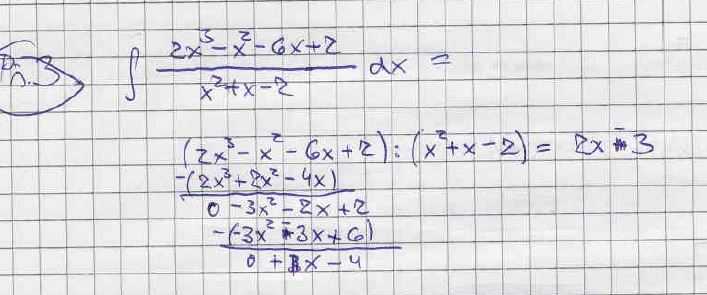 ∫ (2x³ - x² - 6x + 2)/(x² + x - 2) dx =
(2x³ - x² - 6x + 2) : (x² + x - 2) = 2x - 3
-(2x³ + 2x² - 4x)
0 - 3x² - 2x + 2
-(-3x² - 3x + 6)
0 + x - 4